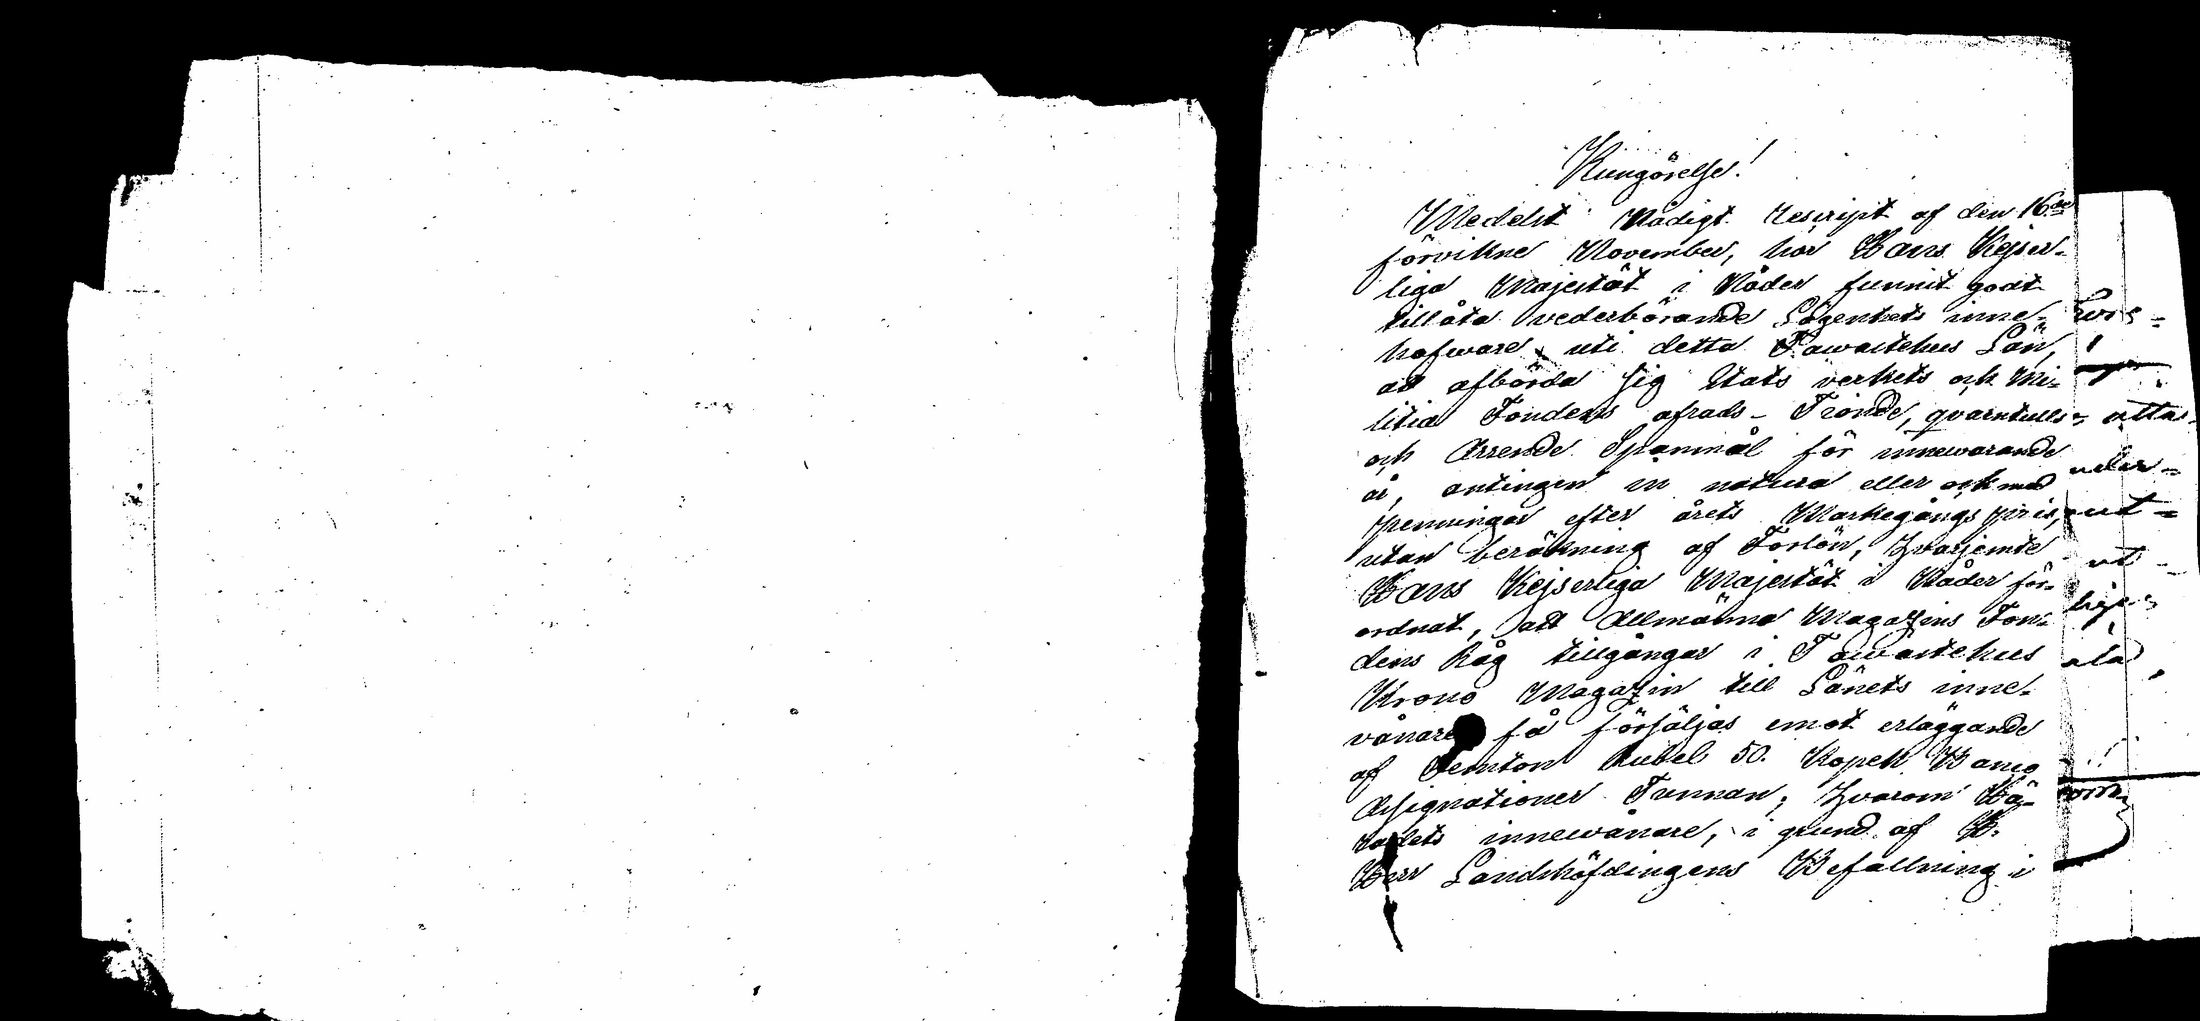 Kungörelse!
Medelst Nådigt rescript af den 16de
förvikne November, har Hans Kejser-
liga Majestät i Nåder funnit godt
tillåta vederbörande Lägenhets inne-
hafware uti detta Tawastehus Län,
att afbörda sig Stats verkets och Mi-
litiæ Fondens afrads- Tionde, qvarntulls-
och Arrende Spanmål för innewarande
år, antingen in natura eller ock med
penningar efter årets Markegångs pris,
utan beräkning af Forlön, hvarjemte
Hans Kejserliga Majestät i Nåder för-
ordnat, att Allmänna Magazins Fon-
dens Råg tillgångar i Tawastehus
Krono Magazin till Länets inne-
vånare få försäljas emot erläggande
af Femton Rubel 50. Kopek Banco
Assignationer Tunnan; hvarom Hä-
radets innewånare, i grund af H.
Herr Landshöfdingens Befallning i